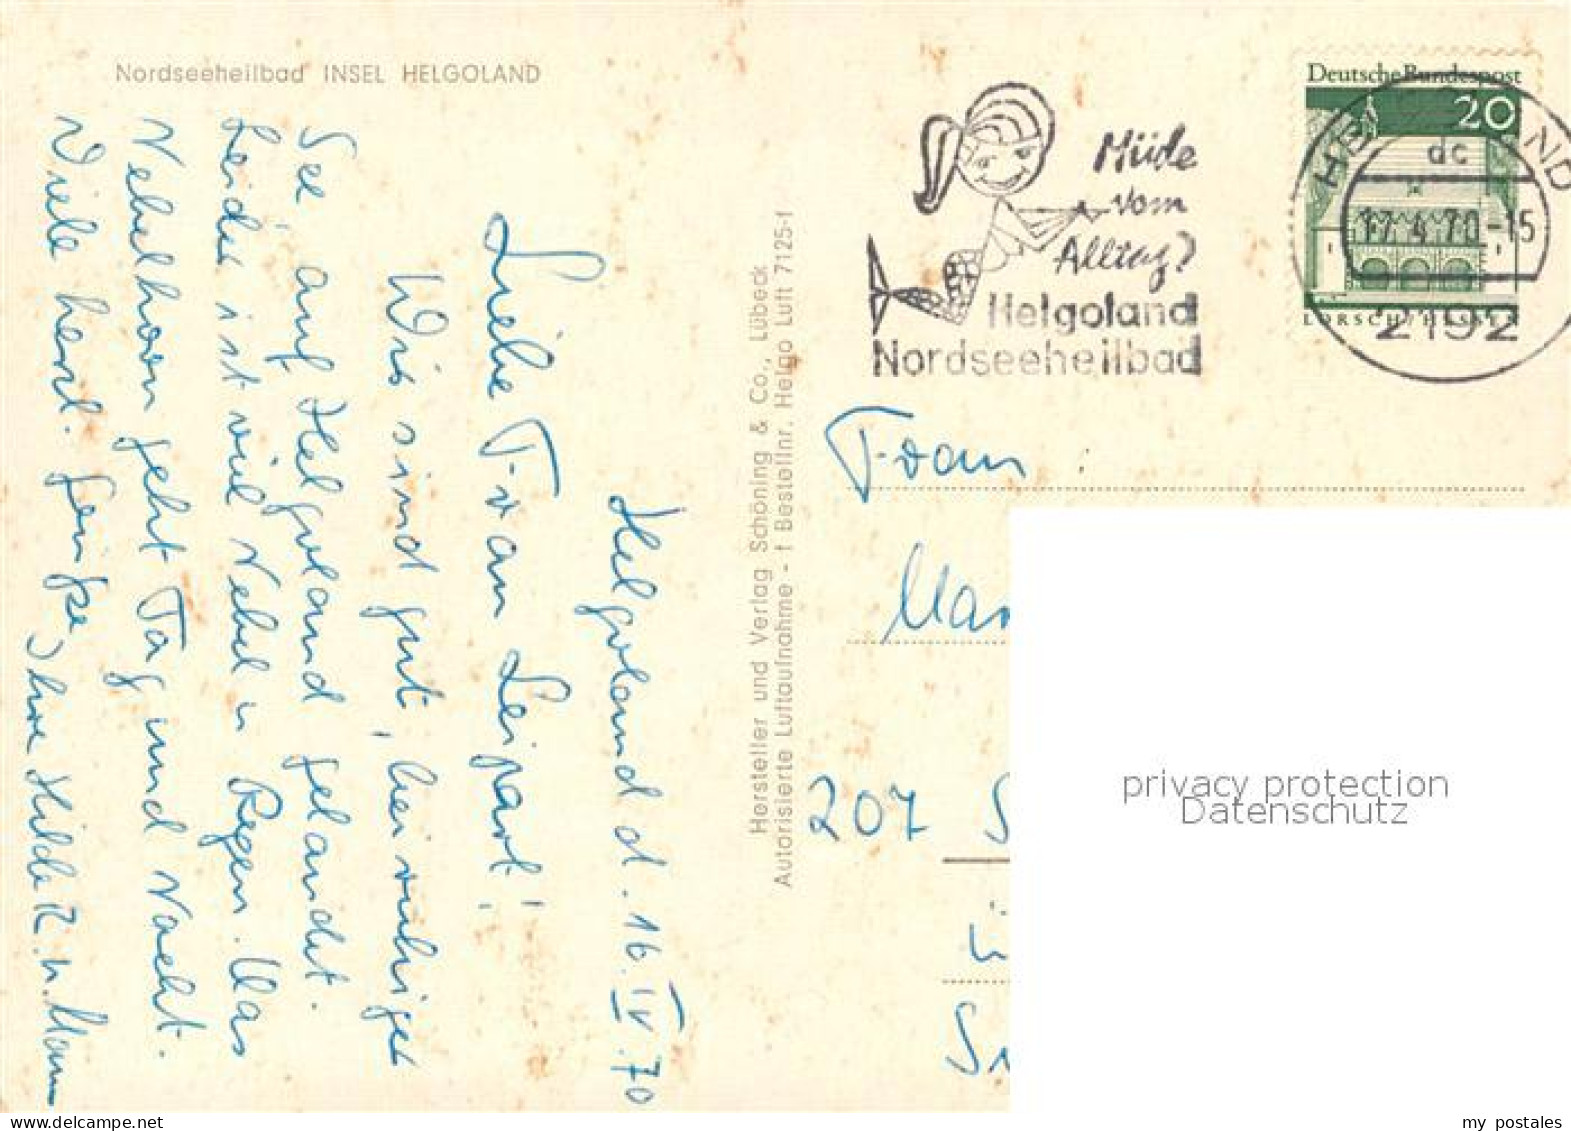 Nordseeheilbad INSEL HELGOLAND
Helgoland d. 16. IV. 70
Liebe Frau Leipart!
Wir sind gut, bei ruhiger
See auf Helgoland gelandet.
Leider ist viel Nebel u. Regen. Das
Nebelhorn geht Tag und Nacht.
Viele herzl. Grüße Ihre Hilde R. u. Mann
Hersteller und Verlag Schöning & Co., Lübeck
Autorisierte Luftaufnahme - † Bestellnr. Helgo Luft 7125-1
Müde
vom
Alltag?
Helgoland
Nordseeheilbad
Deutsche Bundespost
20
LORSCH/HESSEN
HELGOLAND
dc
17.4.70-15
2192
Frau
207
privacy protection
Datenschutz
my_postales